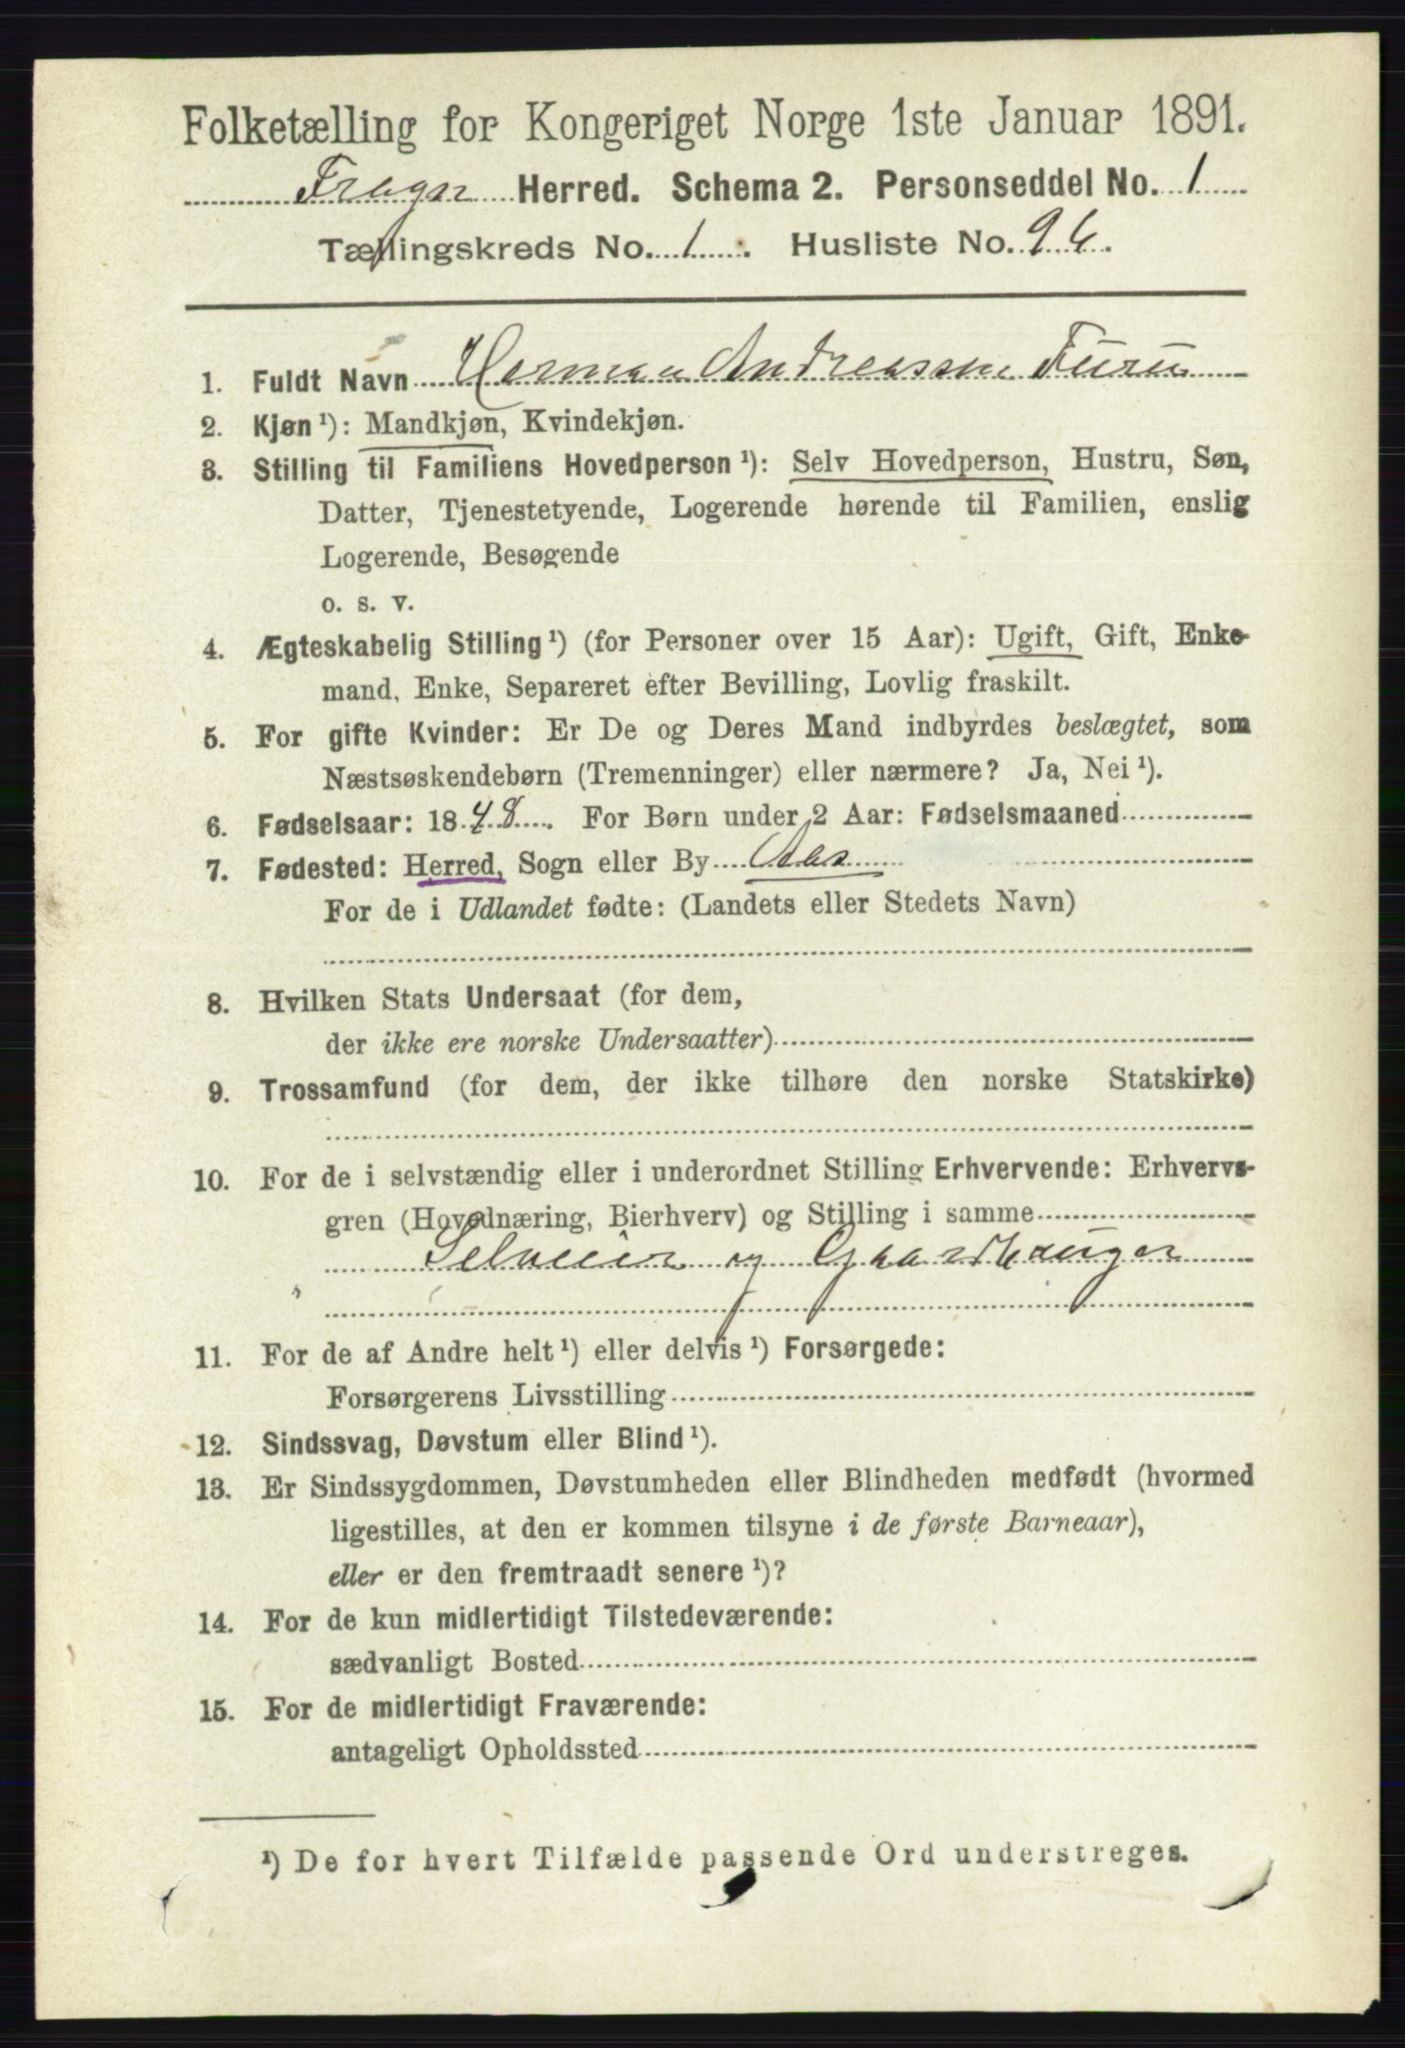 Folketælling for Kongeriget Norge 1ste Januar 1891.
Frogn Herred. Schema 2. Personseddel No. 1
Tællingskreds No. 1. Husliste No. 96.
1. Fuldt Navn Herman Andreassen Furu
2. Kjøn ¹): Mandkjøn, Kvindekjøn.
3. Stilling til Familiens Hovedperson ¹): Selv Hovedperson, Hustru, Søn,
Datter, Tjenestetyende, Logerende hørende til Familien, enslig
Logerende, Besøgende
o. s. v.
4. Ægteskabelig Stilling ¹) (for Personer over 15 Aar): Ugift, Gift, Enke-
mand, Enke, Separeret efter Bevilling, Lovlig fraskilt.
5. For gifte Kvinder: Er De og Deres Mand indbyrdes beslægtet, som
Næstsøskendebørn (Tremenninger) eller nærmere? Ja, Nei ¹).
6. Fødselsaar: 1848. For Børn under 2 Aar: Fødselsmaaned
7. Fødested: Herred, Sogn eller By Aas
For de i Udlandet fødte: (Landets eller Stedets Navn)
8. Hvilken Stats Undersaat (for dem,
der ikke ere norske Undersaatter)
9. Trossamfund (for dem, der ikke tilhøre den norske Statskirke)
10. For de i selvstændig eller i underordnet Stilling Erhvervende: Erhvervs-
gren (Hovednæring, Bierhverv) og Stilling i samme
Selveier og Gaardbruger
11. For de af Andre helt ¹) eller delvis ¹) Forsørgede:
Forsørgerens Livsstilling
12. Sindssvag, Døvstum eller Blind ¹).
13. Er Sindssygdommen, Døvstumheden eller Blindheden medfødt (hvormed
ligestilles, at den er kommen tilsyne i de første Barneaar),
eller er den fremtraadt senere ¹)?
14. For de kun midlertidigt Tilstedeværende:
sædvanligt Bosted
15. For de midlertidigt Fraværende:
antageligt Opholdssted
¹) De for hvert Tilfælde passende Ord understreges.